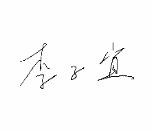 李子宜